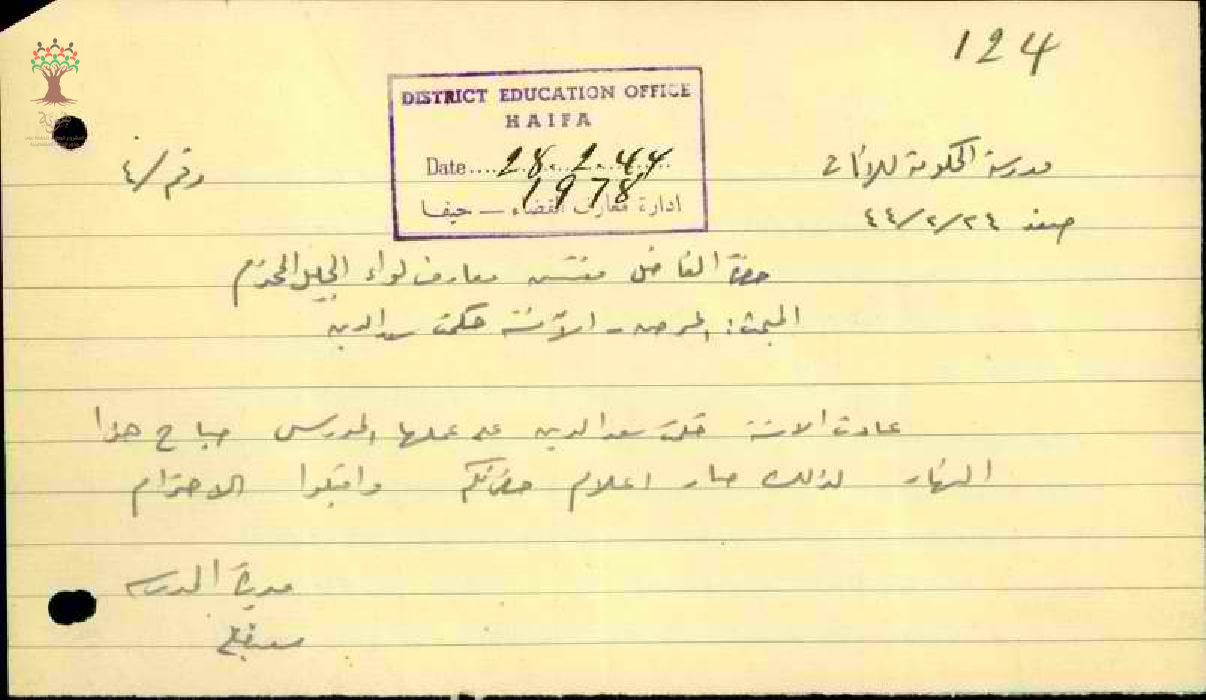 124
DISTRICT EDUCATION OFFICE
HAIFA
Date....28.2.44
1978
ادارة معارف القضاء — حيفا
مدرسة الحكومة للاناث
رقم /٤
صفد ٤٤/٢/٢٤
حضرة الفاضل مفتش معارف لواء الجليل المحترم
المبحث: المرض - الآنسة حكمت سعدالدين
عادت الانسة حكمت سعدالدين الى عملها المدرسي صباح هذا
النهار لذلك صار اعلام حضرتكم واقبلوا الاحترام
مديرة المدرسة